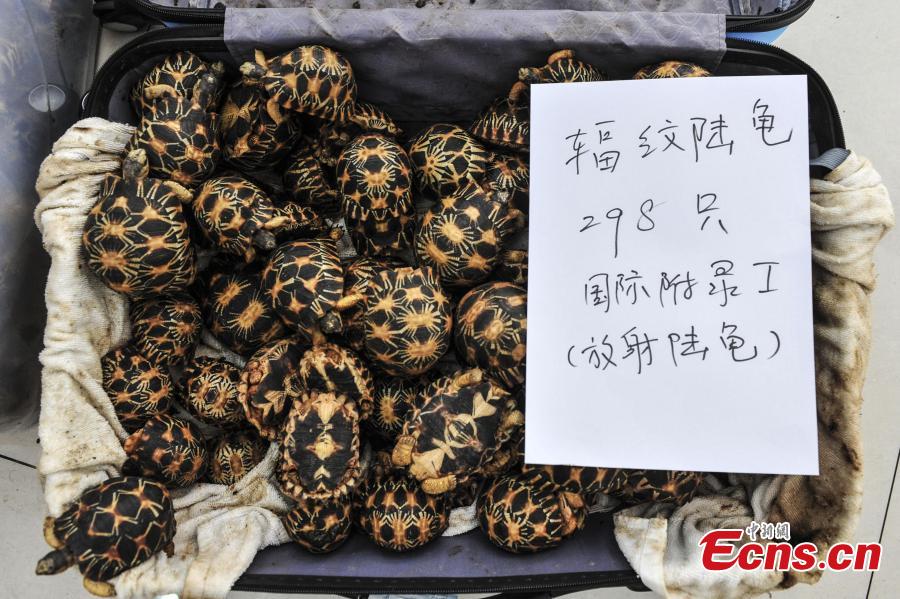 辐纹陆龟
298 只
国际附录I
(放射陆龟)
中新网
Ecns.cn